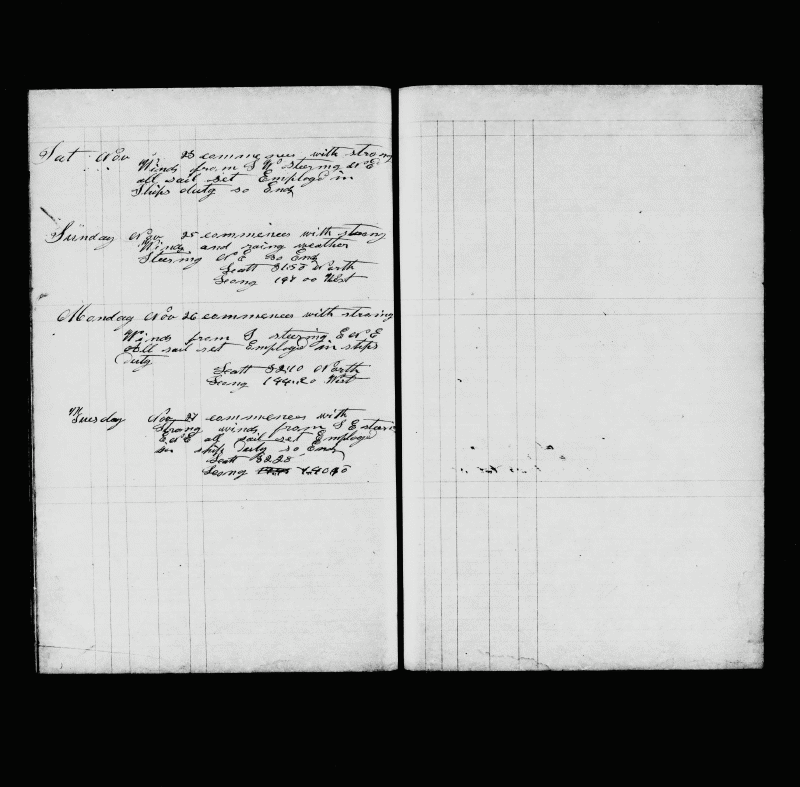 Sat Nov 25 commences with strong
Winds from S W steering N E
all sail set Employd in
Ships duty so Ends
Sunday Nov 25 commences with strong
Winds and rainy weather
Steering N E so Ends
Latt 31.50 North
Long 147 00 West
Monday Nov 26 commences with strong
Winds from S steering E N E
All sail set Employd in ships
duty
Latt 32.10 North
Long 144.20 West
Tuesday Nov 27 commences with
Strong winds from S E steering
E N E all sail set Employd
in ship duty so Ends
Latt 32.28
Long